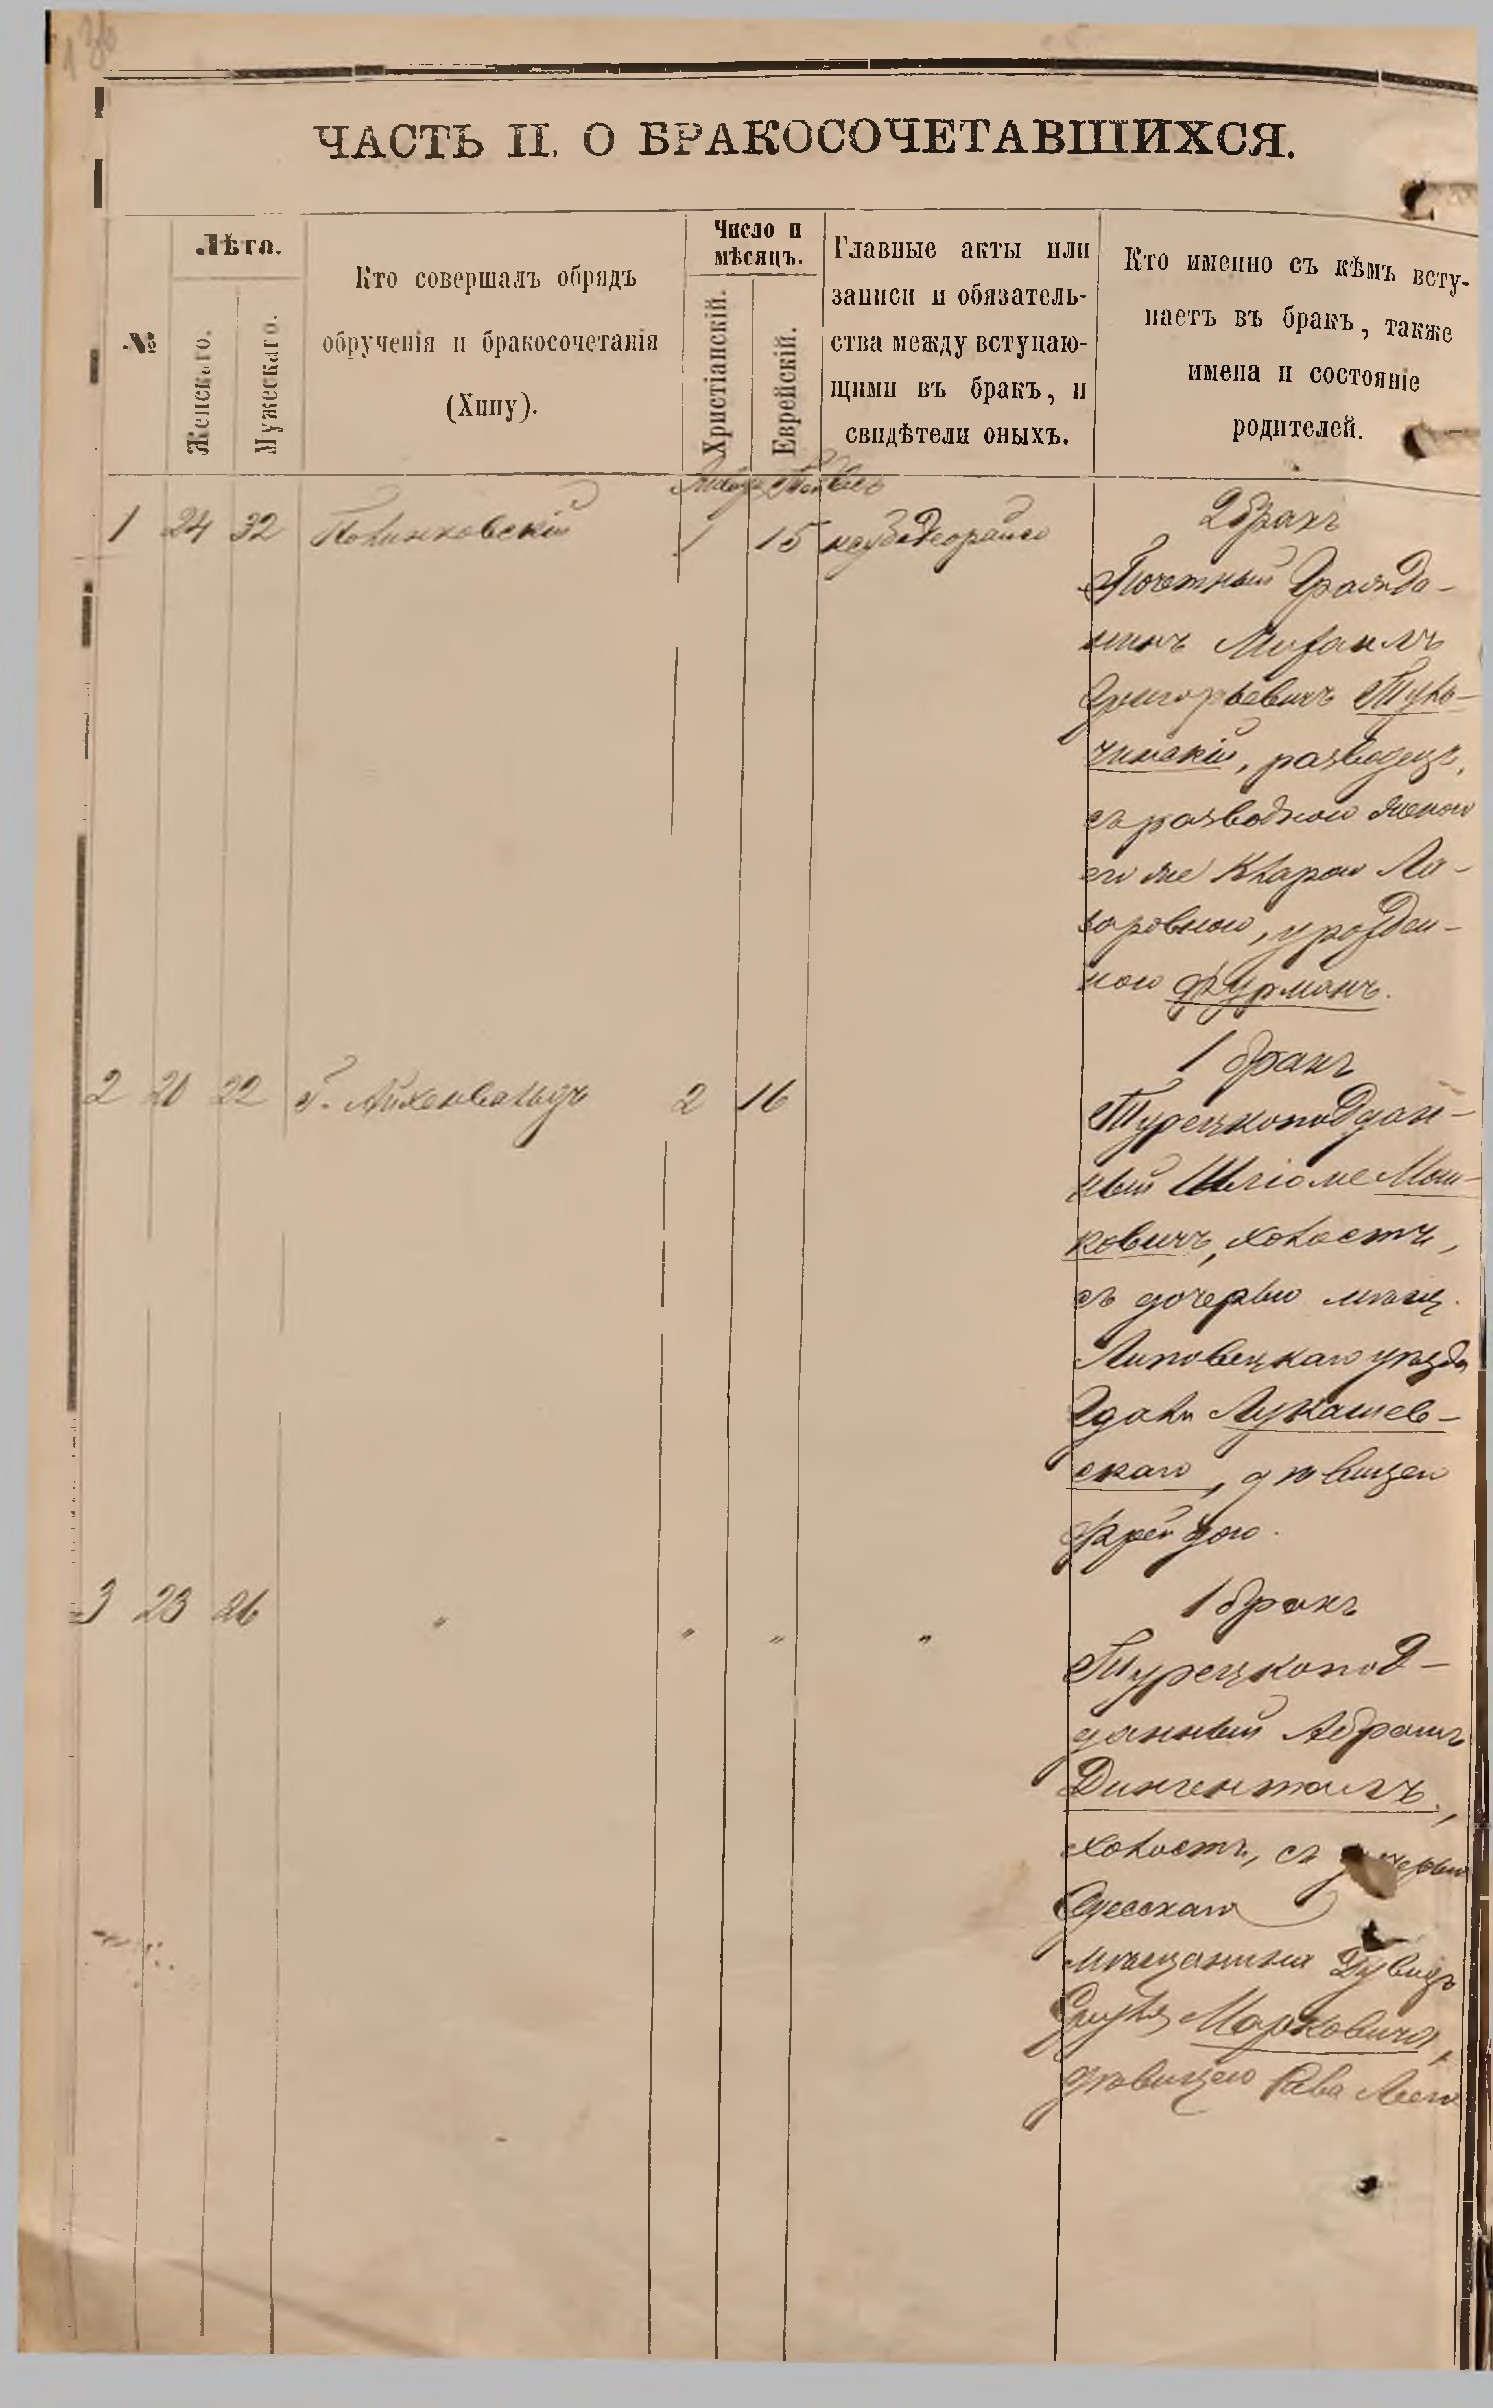 136
ЧАСТЬ II. О БРАКОСОЧЕТАВШИХСЯ.
№
Лѣта.
Женскаго.
Мужескаго.
Кто совершалъ обрядъ
обрученія и бракосочетанія
(Хипу).
Число и
мѣсяцъ.
Христіанскій.
Еврейскій.
Главные акты или
записи и обязатель-
ства между вступаю-
щими въ бракъ, и
свидѣтели оныхъ.
Кто именно съ кѣмъ всту-
паетъ въ бракъ, также
имена и состояніе
родителей.
1 24 32 Полинковскій 1 15
2 бракъ
Почетный Гражда-
нинъ Михаилъ
Григорьевичъ Туль-
чинскій, разводецъ,
съ разводною женою
его же Кларою Ла-
заровною, урожден-
ною Фурманъ.
2 20 22 Г. Айхенвальдъ 2 16
1 бракъ
Турецкоподдан-
ный Шліоме Мош-
ковичъ, холостъ,
съ дочерью мѣщ.
Липовецкаго уѣзда
Гдали Лукашев-
скаго, дѣвицею
Фрейдою.
3 23 26 " " " "
1 бракъ
Турецкопод-
данный Абрамъ
Дингенталъ,
холостъ, съ дочерью
Одесскаго
мѣщанина Дувидъ
Сруля Марковича,
дѣвицею Рива Леею